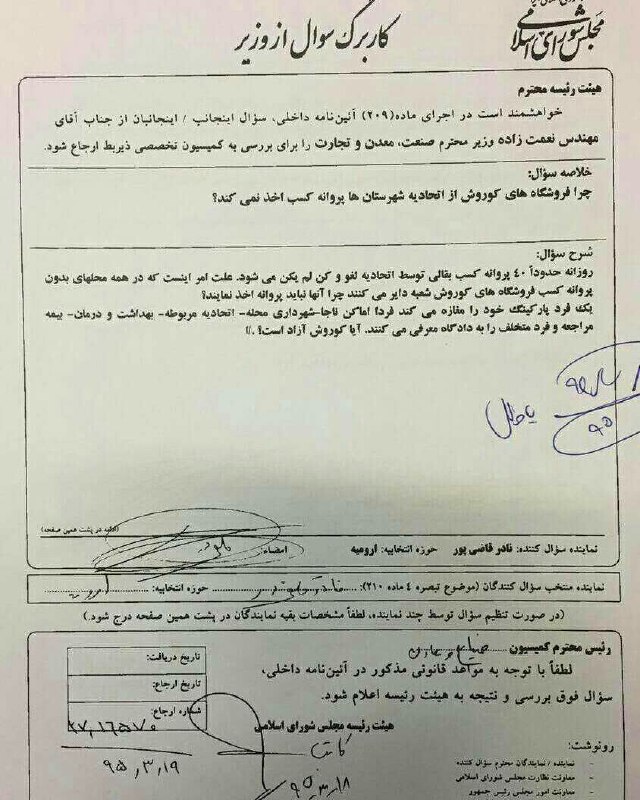 مجلس شورای اسلامی
کاربرگ سوال از وزیر
هیئت رئیسه محترم
خواهشمند است در اجرای ماده(۲۰۹) آئین‌نامه داخلی، سؤال اینجانب / اینجانبان از جناب آقای
مهندس نعمت زاده وزیر محترم صنعت، معدن و تجارت را برای بررسی به کمیسیون تخصصی ذیربط ارجاع شود.
خلاصه سؤال:
چرا فروشگاه های کوروش از اتحادیه شهرستان ها پروانه کسب اخذ نمی کند؟
شرح سؤال:
روزانه حدوداً ۴۰ پروانه کسب بقالی توسط اتحادیه لغو و کن لم یکن می شود. علت امر اینست که در همه محلهای بدون
پروانه کسب فروشگاه های کوروش شعبه دایر می کنند چرا آنها نباید پروانه اخذ نمایند؟
یک فرد پارکینگ خود را مغازه می کند فردا اماکن ناجا-شهرداری محله- اتحادیه مربوطه- بهداشت و درمان- بیمه
مراجعه و فرد متخلف را به دادگاه معرفی می کنند. آیا کوروش آزاد است؟ .//
(ادامه در پشت همین صفحه)
نماینده سؤال کننده: نادر قاضی پور حوزه انتخابیه: ارومیه امضاء:
نماینده منتخب سؤال کنندگان (موضوع تبصره ۴ ماده ۲۱۰): حوزه انتخابیه: ارومیه
(در صورت تنظیم سؤال توسط چند نماینده، لطفاً مشخصات بقیه نمایندگان در پشت همین صفحه درج شود.)
رئیس محترم کمیسیون صنایع و معادن
لطفاً با توجه به مواعد قانونی مذکور در آئین‌نامه داخلی،
سؤال فوق بررسی و نتیجه به هیئت رئیسه اعلام شود.
هیئت رئیسه مجلس شورای اسلامی
۹۵،۳،۱۸
تاریخ دریافت:
تاریخ ارجاع:
شماره ارجاع:
۹۵،۳،۱۹
رونوشت:
- نماینده / نمایندگان محترم سؤال کننده
- معاونت نظارت مجلس شورای اسلامی
- معاونت امور مجلس رئیس جمهور